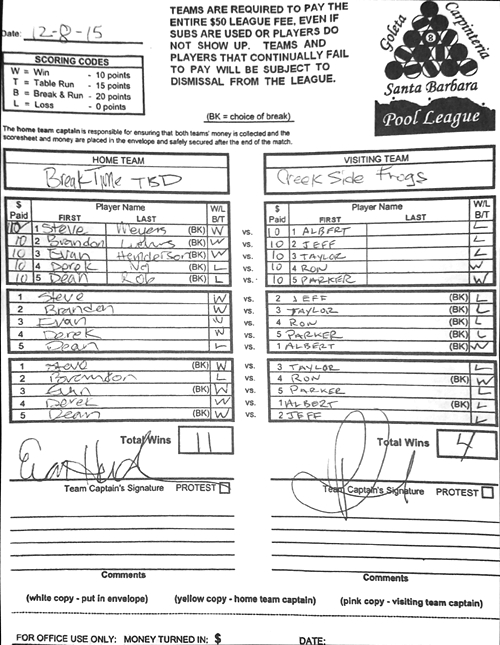 TEAMS ARE REQUIRED TO PAY THE
ENTIRE $50 LEAGUE FEE, EVEN IF
SUBS ARE USED OR PLAYERS DO
NOT SHOW UP. TEAMS AND
PLAYERS THAT CONTINUALLY FAIL
TO PAY WILL BE SUBJECT TO
DISMISSAL FROM THE LEAGUE.
Date: 12-8-15
SCORING CODES
W = Win - 10 points
T = Table Run - 15 points
B = Break & Run - 20 points
L = Loss - 0 points
Goleta Carpinteria
8
Santa Barbara
Pool League
(BK = choice of break)
The home team captain is responsible for ensuring that both teams' money is collected and the
scoresheet and money are placed in the envelope and safely secured after the end of the match.
HOME TEAM VISITING TEAM
BreakTime TBD Creek Side Frogs
$ Paid Player Name FIRST LAST W/L B/T $ Paid Player Name FIRST LAST W/L B/T
10 1 Steve Meyers (BK) W vs. 10 1 ALBERT L
10 2 Brandon (BK) W vs. 10 2 JEFF L
10 3 Evan Henderson (BK) W vs. 10 3 TAYLOR L
10 4 Derek Ng (BK) L vs. 10 4 RON W
10 5 Dean Rob (BK) L vs. 10 5 PARKER W
1 Steve W vs. 2 JEFF (BK) L
2 Brandon W vs. 3 TAYLOR (BK) L
3 Evan W vs. 4 RON (BK) L
4 Derek W vs. 5 PARKER (BK) L
5 Dean L vs. 1 ALBERT (BK) W
1 Steve (BK) W vs. 3 TAYLOR L
2 Brandon (BK) L vs. 4 RON W
3 Evan (BK) W vs. 5 PARKER L
4 Derek (BK) W vs. 1 ALBERT L
5 Dean (BK) W vs. 2 JEFF L
Total Wins 11 Total Wins 4
Team Captain's Signature PROTEST Team Captain's Signature PROTEST
Comments Comments
(white copy - put in envelope) (yellow copy - home team captain) (pink copy - visiting team captain)
FOR OFFICE USE ONLY: MONEY TURNED IN: $ DATE: